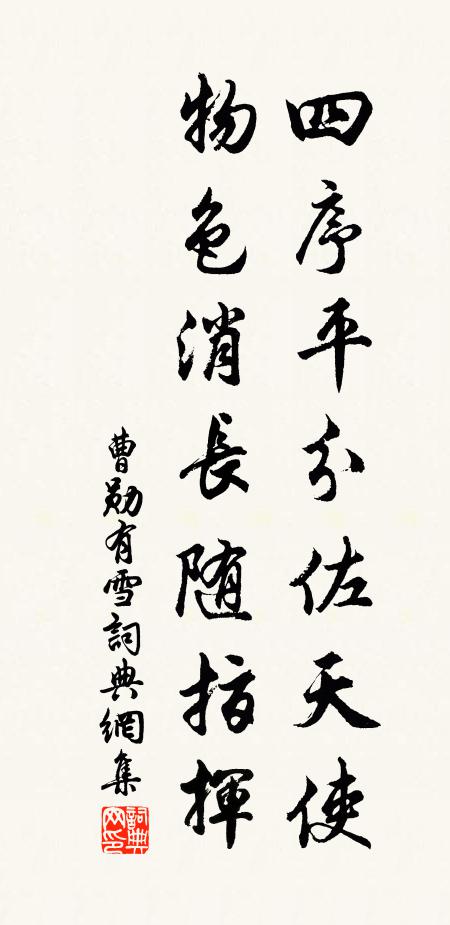 四序平分佐天使
物色消長随指揮
曹勛有雪詞典網集
詞典网印